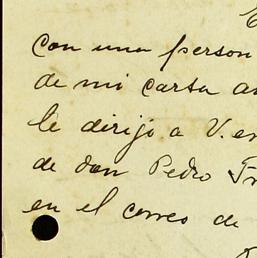 con una person
de mi carta a
le dirijo a V. en
de don Pedro
en el correo de